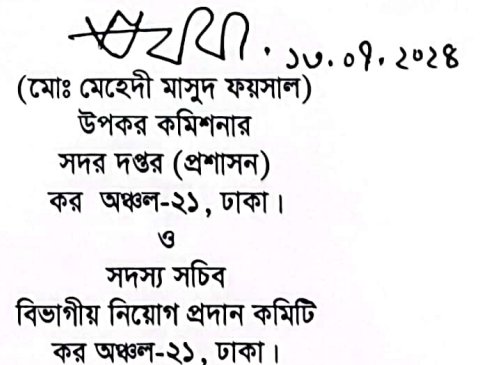 ১৩.০৭.২০২৪
(মোঃ মেহেদী মাসুদ ফয়সাল)
উপকর কমিশনার
সদর দপ্তর (প্রশাসন)
কর অঞ্চল-২১, ঢাকা।
ও
সদস্য সচিব
বিভাগীয় নিয়োগ প্রদান কমিটি
কর অঞ্চল-২১, ঢাকা।